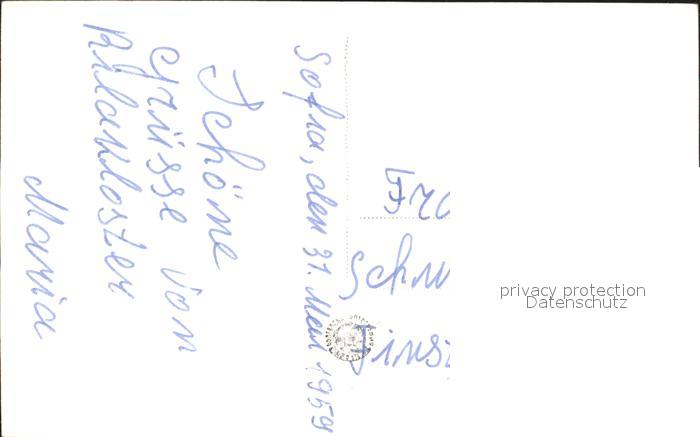 Sofia, den 31. Mai 1959
Schöne
Grüsse vom
Rilakloster
Maria
Schm
privacy protection
Datenschutz